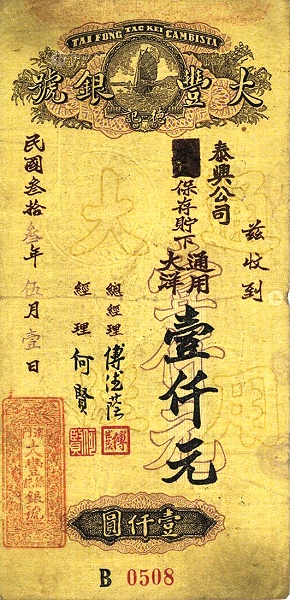 TAI FONG TAC KEI CAMBISTA
大豐銀號
德記
茲收到
泰興公司
保存貯下
通用
大洋
壹仟元
總經理 傅德蔭
經理 何賢
民國叁拾叁年伍月壹日
大豐
銀號
壹仟圓
B 0508